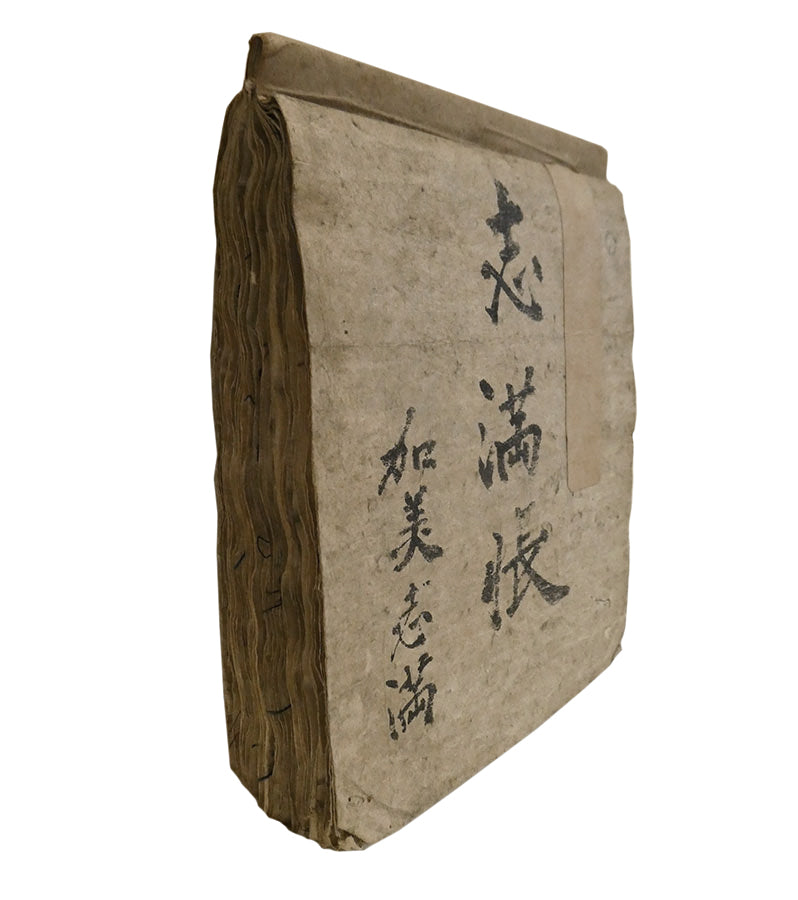 志満帳
加美志満